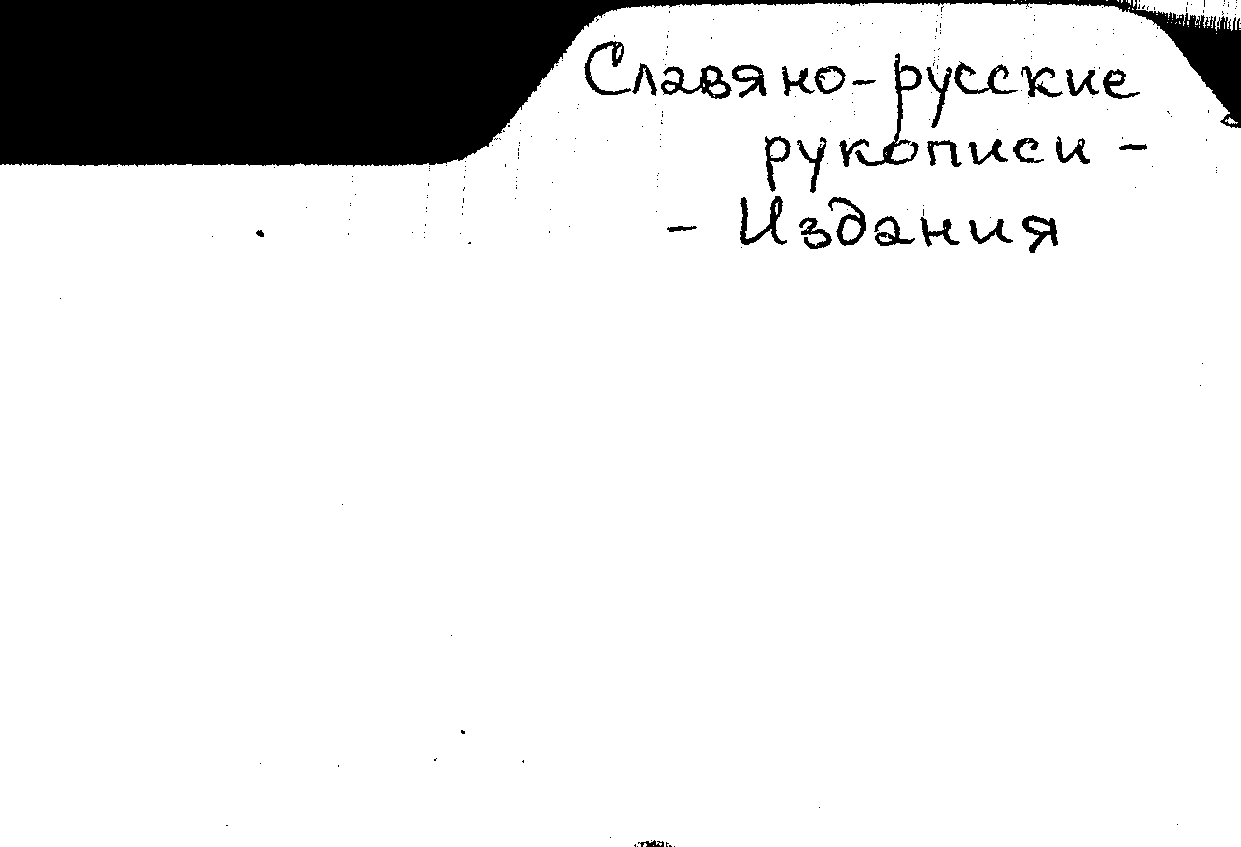 Славяно-русские
рукописи -
- Издания